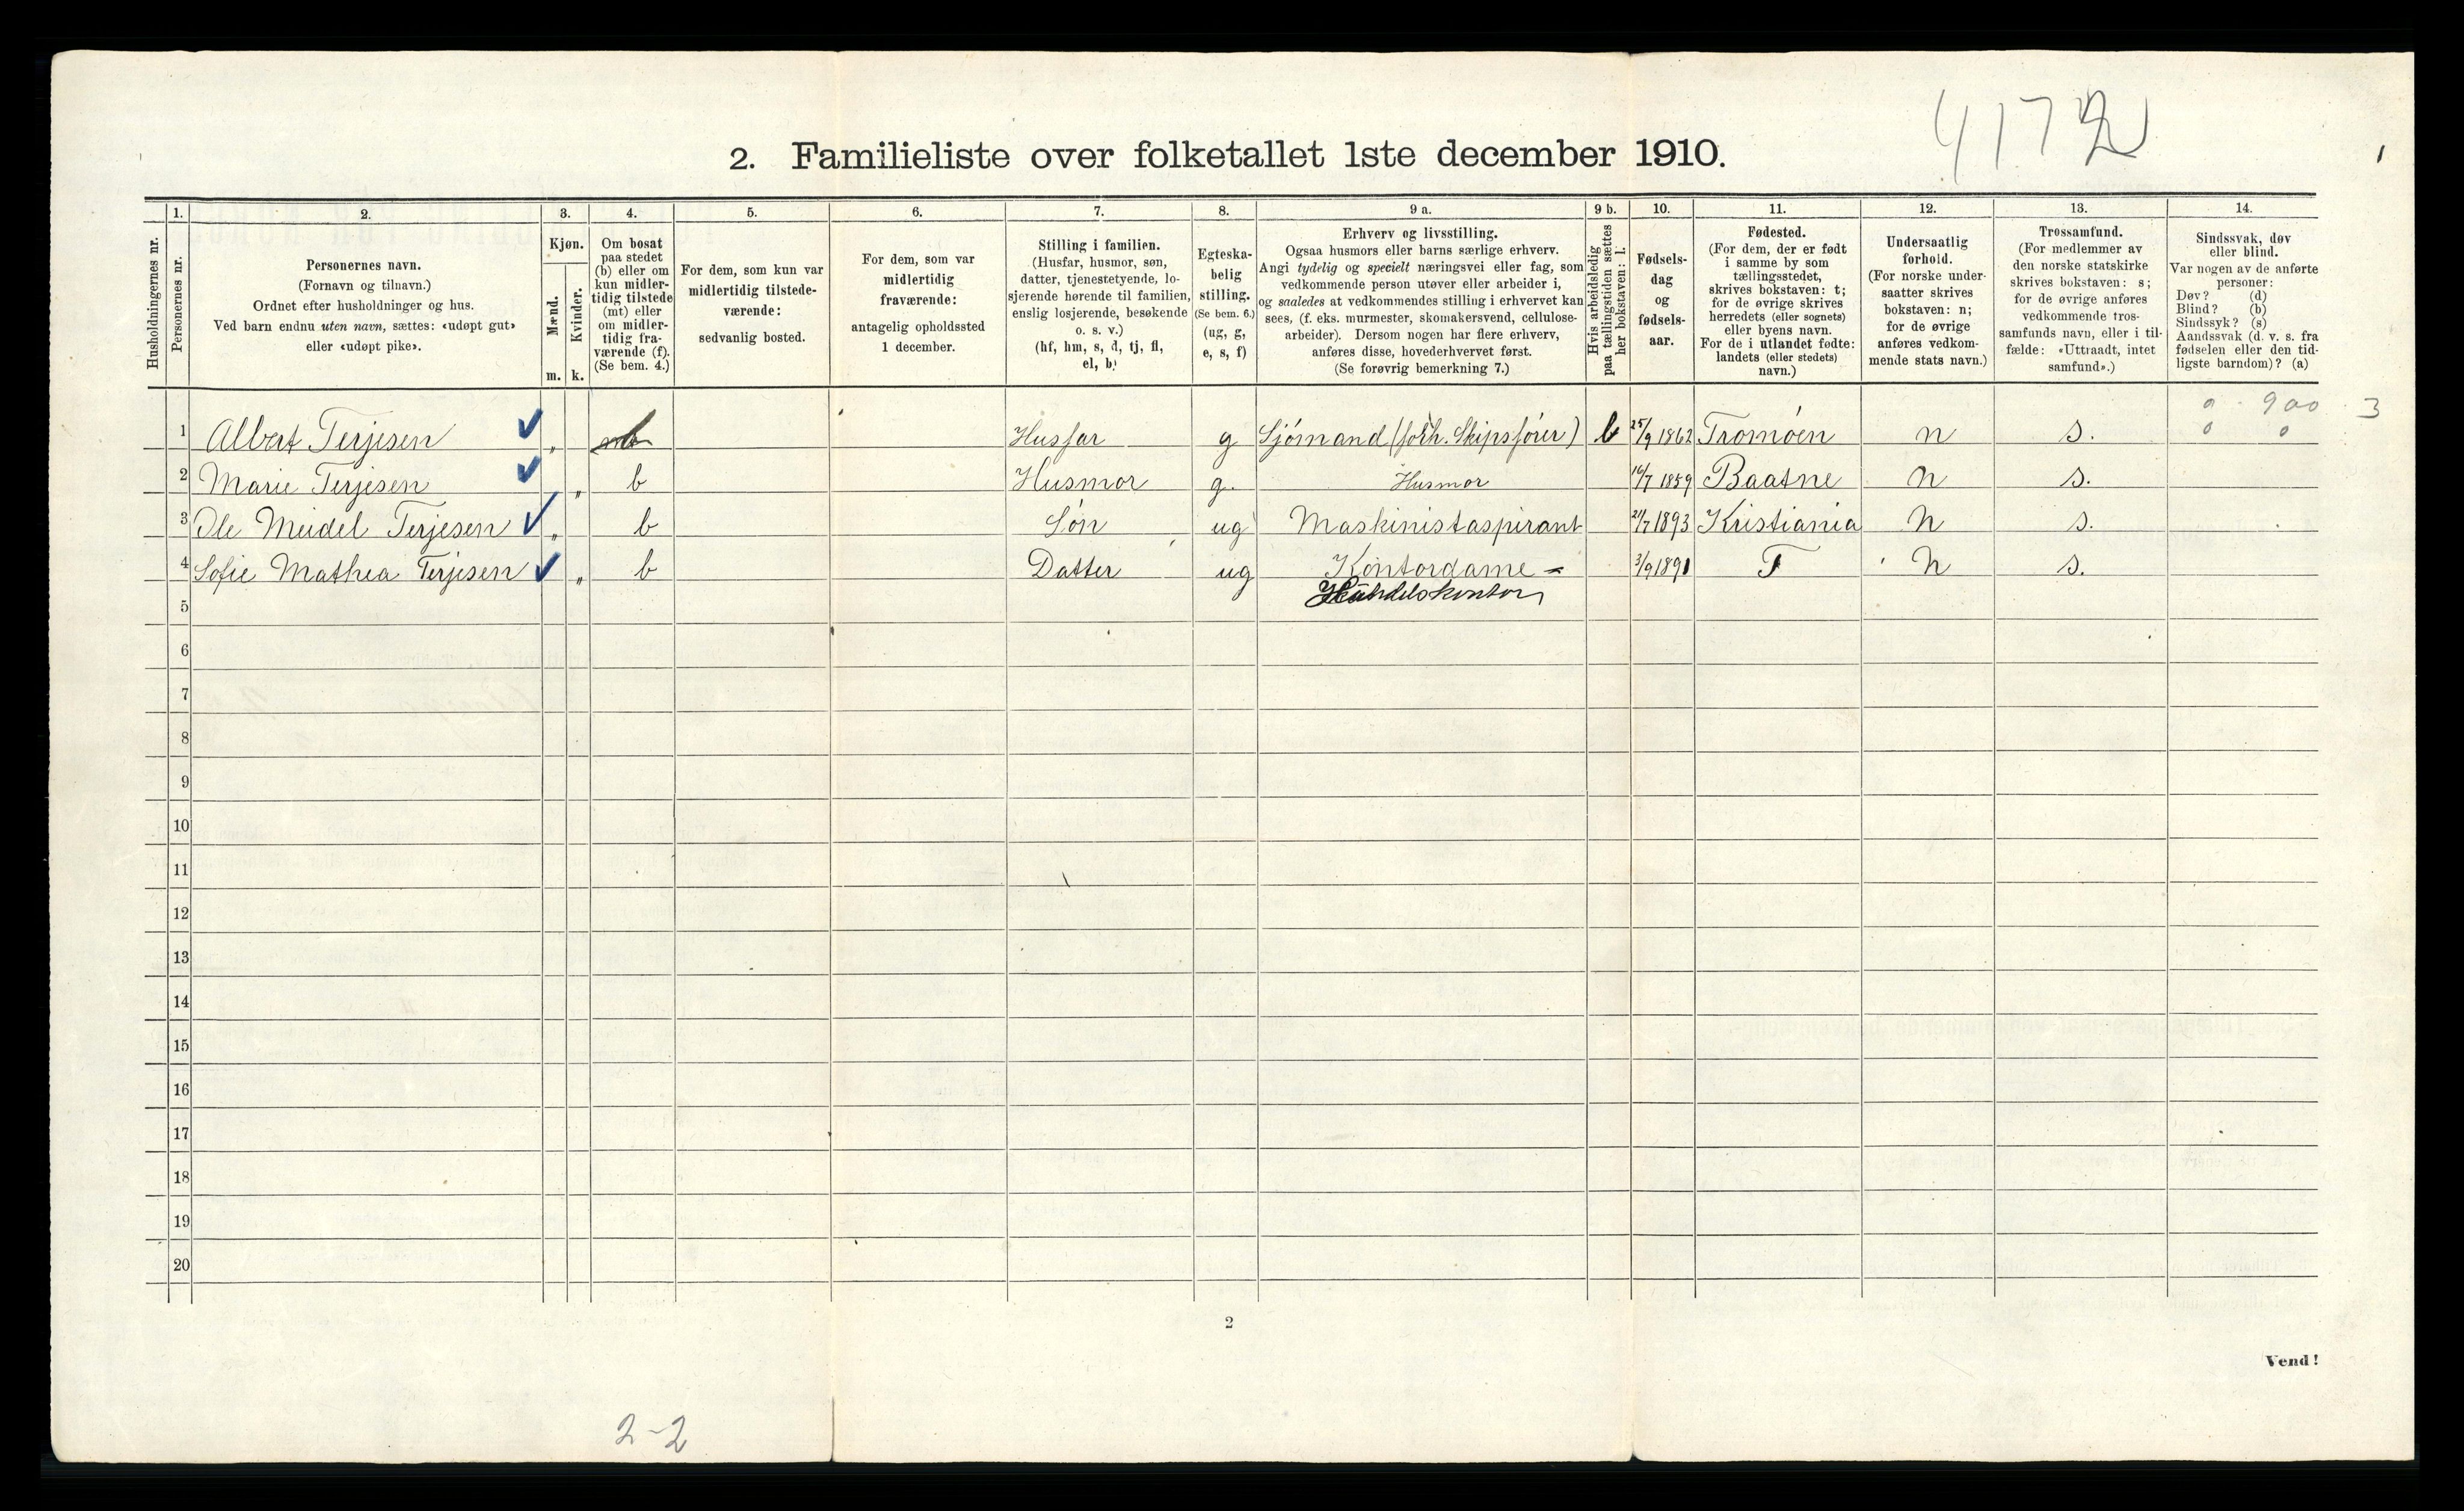 4172
1
2. Familieliste over folketallet 1ste december 1910.
Husholdningernes nr.
1.
Personernes nr.
2.
Personernes navn.
(Fornavn og tilnavn.)
Ordnet efter husholdninger og hus.
Ved barn endnu uten navn, sættes: «udøpt gut»
eller «udøpt pike».
3.
Kjøn.
Mænd.
Kvinder.
m. k.
4.
Om bosat
paa stedet
(b) eller om
kun midler-
tidig tilstede
(mt) eller
om midler-
tidig fra-
værende (f).
(Se bem. 4.)
5.
For dem, som kun var
midlertidig tilstede-
værende:
sedvanlig bosted.
6.
For dem, som var
midlertidig
fraværende:
antagelig opholdssted
1 december.
7.
Stilling i familien.
(Husfar, husmor, søn,
datter, tjenestetyende, lo-
sjerende hørende til familien,
enslig losjerende, besøkende
o. s. v.)
(hf, hm, s, d, tj, fl,
el, b)
8.
Egteska-
belig
stilling.
(Se bem. 6.)
(ug, g,
e, s, f)
9 a.
Erhverv og livsstilling.
Ogsaa husmors eller barns særlige erhverv.
Angi tydelig og specielt næringsvei eller fag, som
vedkommende person utøver eller arbeider i,
og saaledes at vedkommendes stilling i erhvervet kan
sees, (f. eks. murmester, skomakersvend, cellulose-
arbeider). Dersom nogen har flere erhverv,
anføres disse, hovederhvervet først.
(Se forøvrig bemerkning 7.)
9 b.
Hvis arbeidsledig
paa tællingstiden sættes
her bokstaven: l.
10.
Fødsels-
dag
og
fødsels-
aar.
11.
Fødested.
(For dem, der er født
i samme by som
tællingsstedet,
skrives bokstaven: t;
for de øvrige skrives
herredets (eller sognets)
eller byens navn.
For de i utlandet fødte:
landets (eller stedets)
navn.)
12.
Undersaatlig
forhold.
(For norske under-
saatter skrives
bokstaven: n;
for de øvrige
anføres vedkom-
mende stats navn.)
13.
Trossamfund.
(For medlemmer av
den norske statskirke
skrives bokstaven: s;
for de øvrige anføres
vedkommende tros-
samfunds navn, eller i til-
fælde: «Uttraadt, intet
samfund».)
14.
Sindssvak, døv
eller blind.
Var nogen av de anførte
personer:
Døv? (d)
Blind? (b)
Sindssyk? (s)
Aandssvak (d. v. s. fra
fødselen eller den tid-
ligste barndom)? (a)
0 · 900 · 3
1 Albert Terjesen „ b Husfar g Sjömand (forh. Skipsförer) 25/9 1862 Tromöen n s. 0 0
2 Marie Terjesen „ b Husmor g. Husmor 16/7 1859 Baatne n s.
3 Ole Meidel Terjesen „ b Sön ug Maskinistaspirant 21/7 1893 Kristiania n s.
4 Sofie Mathea Terjesen „ b Datter ug Kontordame - 3/9 1891 T n s.
Handelskontor
5
6
7
8
9
10
11
12
13
14
15
16
17
18
19
20
2
Vend!
2-2